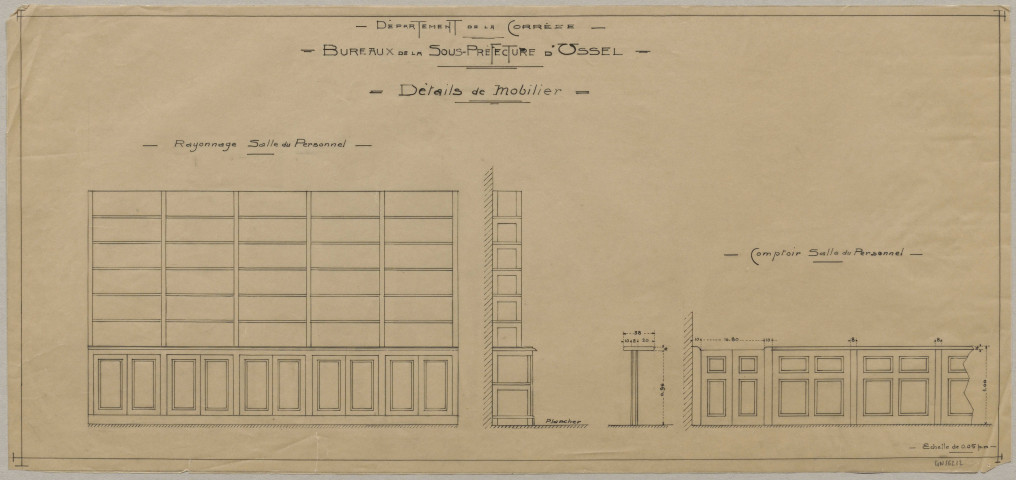 — DÉPARTEMENT DE LA CORRÈZE —
— BUREAUX DE LA SOUS-PRÉFECTURE D'USSEL —
— Détails de Mobilier —
— Rayonnage Salle du Personnel —
— Comptoir Salle du Personnel —
38
Plancher
1.00
— Echelle de 0.05 p.m —